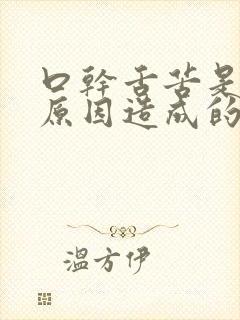 口幹舌苦是
原因造成的
溫方伊